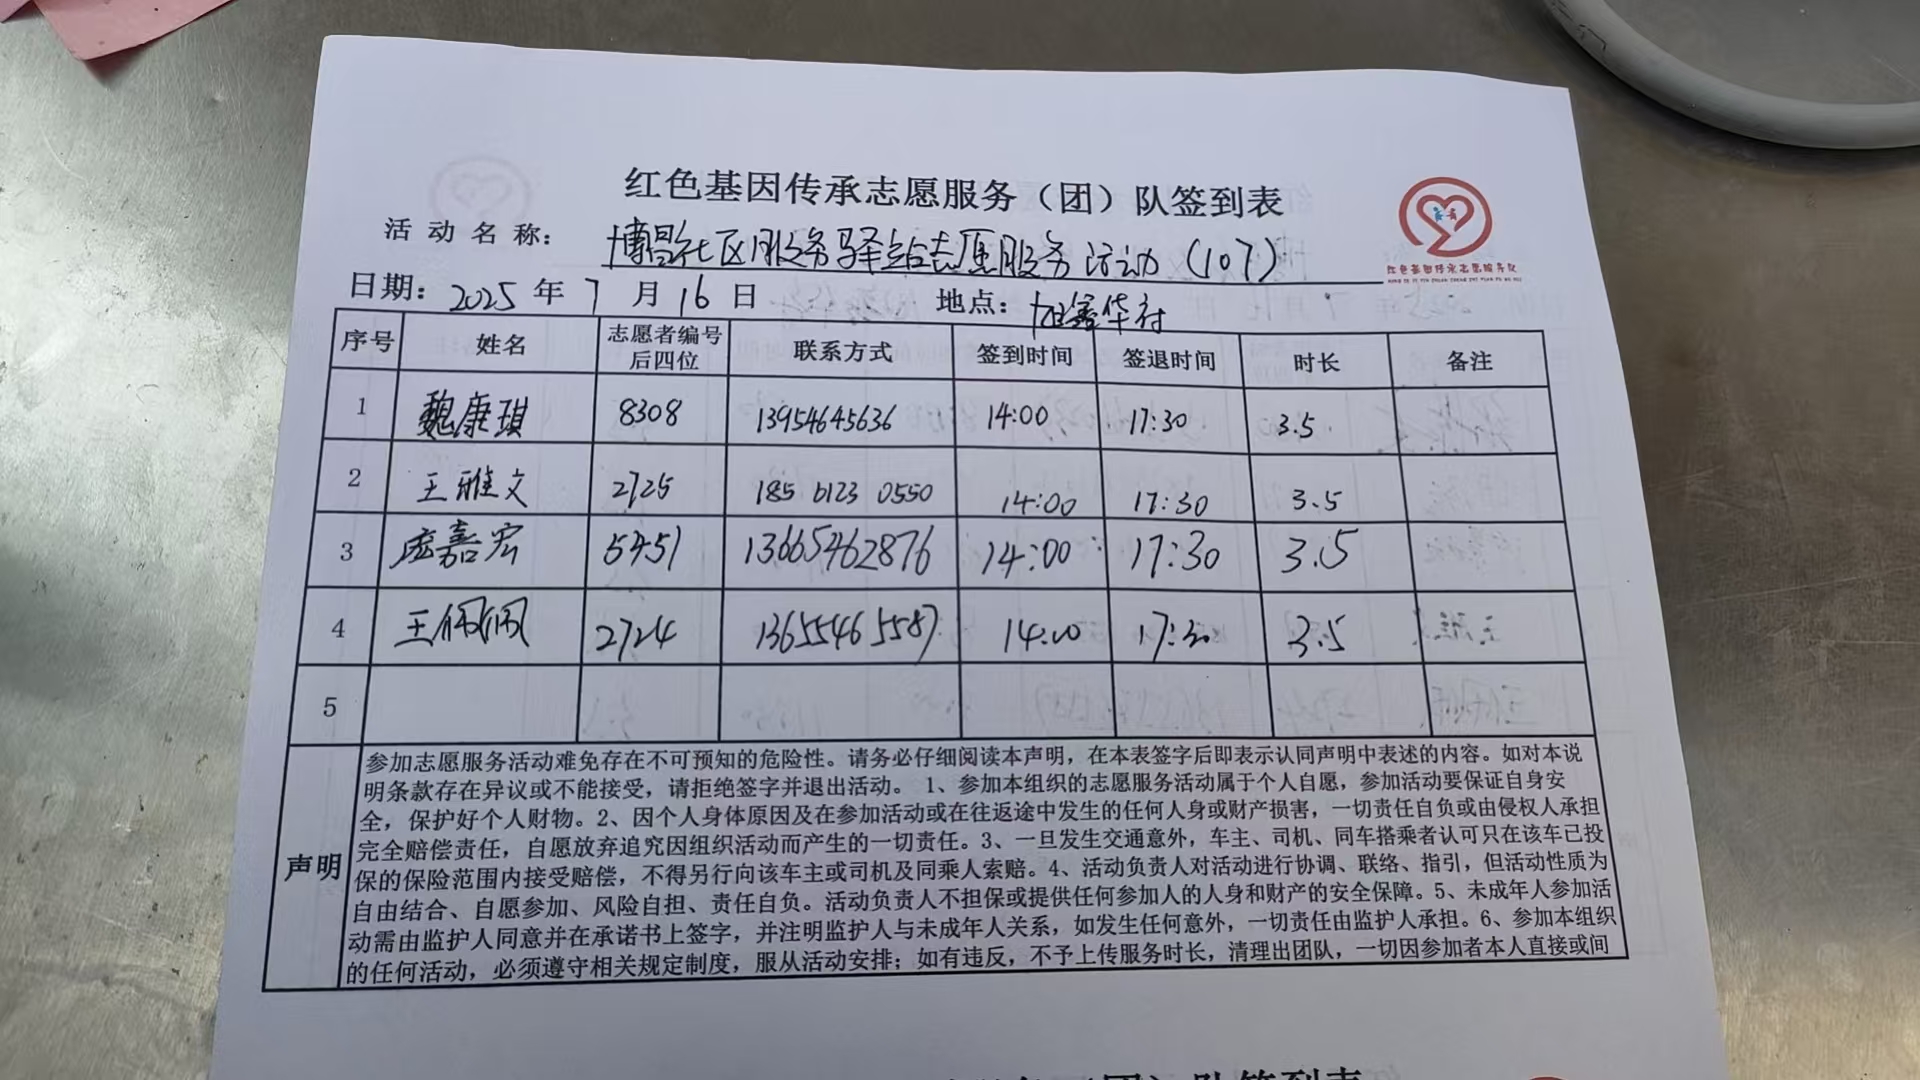 红色基因传承志愿服务（团）队签到表
活 动 名 称： 博昌社区服务驿站志愿服务活动（107）
红色基因传承志愿服务队
日期： 2025 年 7 月 16 日 地点： 旭鑫华府
序号 姓名 志愿者编号后四位 联系方式 签到时间 签退时间 时长 备注
1 魏康琪 8308 13954645636 14:00 17:30 3.5
2 王雅文 2725 185 6123 0550 14:00 17:30 3.5
3 庞嘉宏 5451 13665462876 14:00 17:30 3.5
4 王佩佩 2724 13655465587 14:00 17:30 3.5
5
声明
参加志愿服务活动难免存在不可预知的危险性。请务必仔细阅读本声明，在本表签字后即表示认同声明中表述的内容。如对本说
明条款存在异议或不能接受，请拒绝签字并退出活动。 1、参加本组织的志愿服务活动属于个人自愿，参加活动要保证自身安
全，保护好个人财物。2、因个人身体原因及在参加活动或在往返途中发生的任何人身或财产损害，一切责任自负或由侵权人承担
完全赔偿责任，自愿放弃追究因组织活动而产生的一切责任。3、一旦发生交通意外，车主、司机、同车搭乘者认可只在该车已投
保的保险范围内接受赔偿，不得另行向该车主或司机及同乘人索赔。4、活动负责人对活动进行协调、联络、指引，但活动性质为
自由结合、自愿参加、风险自担、责任自负。活动负责人不担保或提供任何参加人的人身和财产的安全保障。5、未成年人参加活
动需由监护人同意并在承诺书上签字，并注明监护人与未成年人关系，如发生任何意外，一切责任由监护人承担。6、参加本组织
的任何活动，必须遵守相关规定制度，服从活动安排；如有违反，不予上传服务时长，清理出团队，一切因参加者本人直接或间